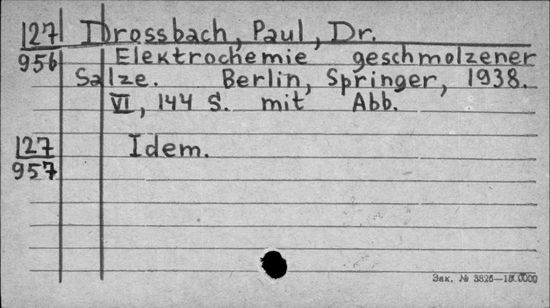 127 Drossbach, Paul, Dr.
956 Elektrochemie geschmolzener
Salze. Berlin, Springer, 1938.
VI, 144 S. mit Abb.
127 Idem.
957
Зак. № 3826—150000